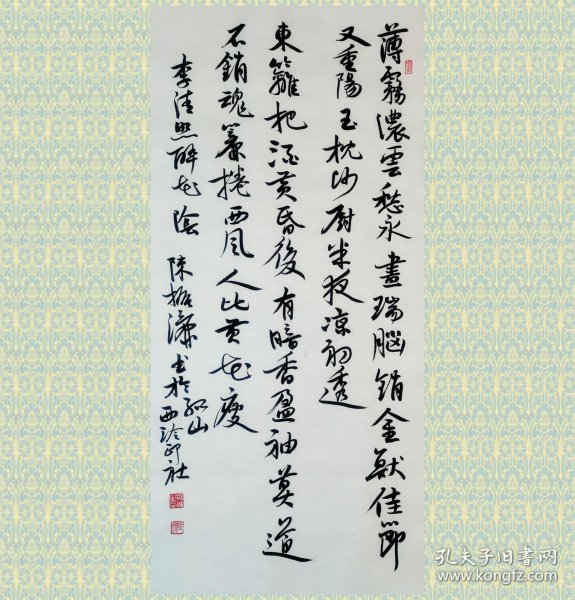 薄霧濃雲愁永晝瑞腦銷金獸佳節
又重陽玉枕沙厨半夜凉初透
東籬把酒黄昏後有暗香盈袖莫道
不銷魂簾捲西风人比黄花瘦
李清照醉花陰 陳振濂书於孤山
西泠印社
孔夫子旧书网
www.kongfz.com